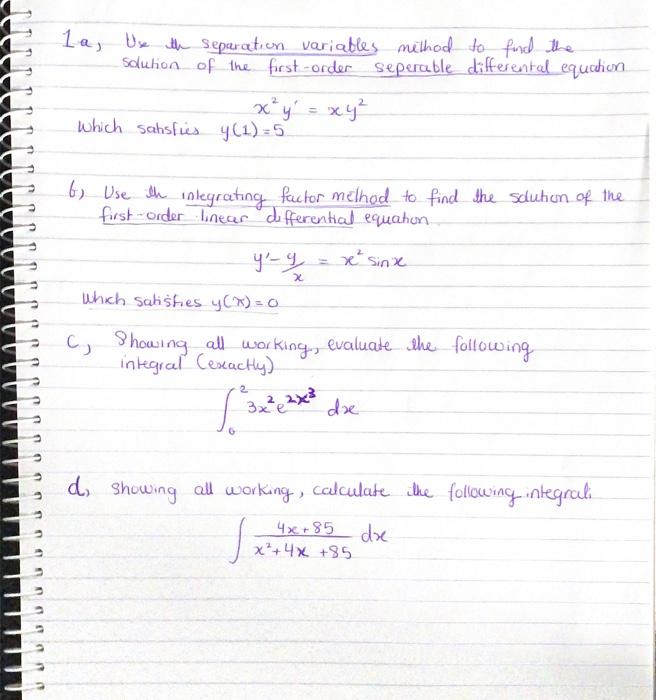 1a, Use th separation variables method to find the
solution of the first-order seperable differental equation
x² y' = xy²
which satisfies y(1)=5
b) Use th integrating factor method to find the solution of the
first-order linear differential equation
y' - y/x = x² sinx
which satisfies y(π)=0
c, Showing all working, evaluate the following
integral (exactly)
∫₀² 3x²e^(2x³) dx
d, showing all working, calculate the following integral:
∫ (4x+85)/(x²+4x+85) dx